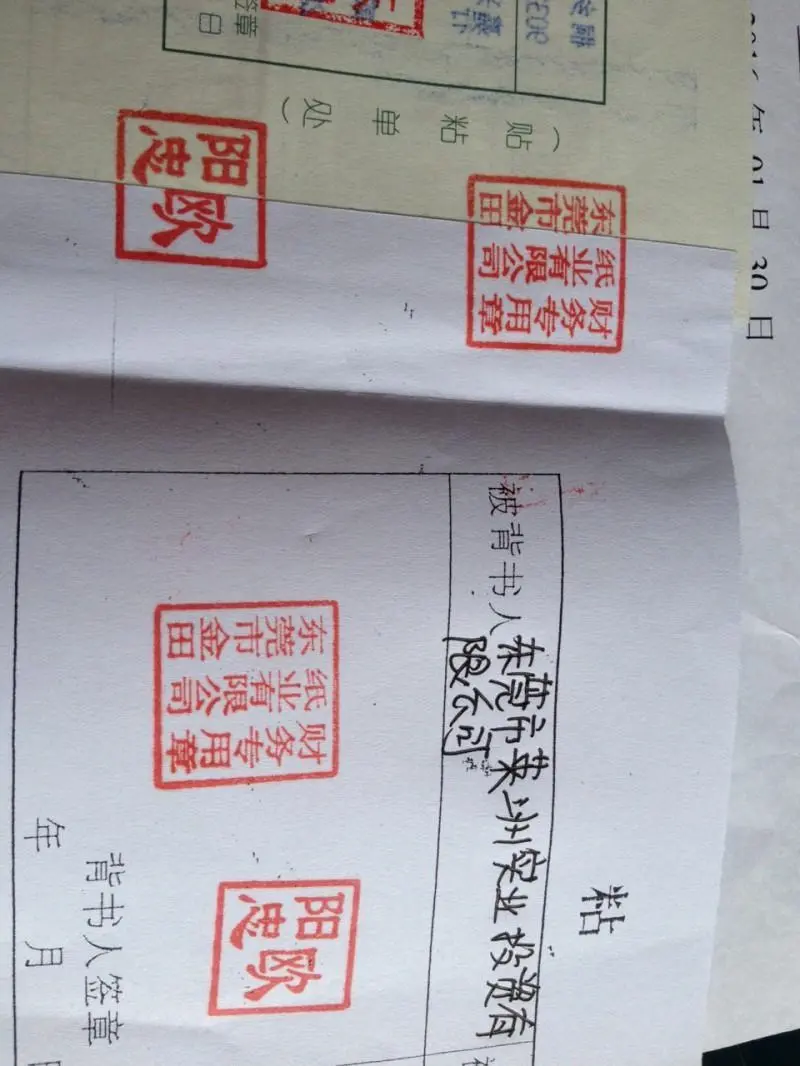 2016 年 01 月 30 日
(贴粘单处)
签章
日
东莞市金田
纸业有限公司
财务专用章
欧阳忠
粘
被背书人 东莞市莱洲实业投资有
限公司
东莞市金田
纸业有限公司
财务专用章
欧阳忠
背书人签章
年 月